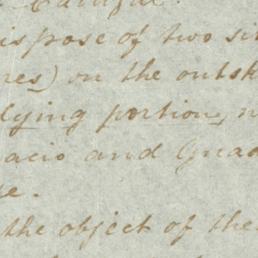 ispose of two si
res) on the outsk
lying portion,
acio and Guad
se.
the object of the